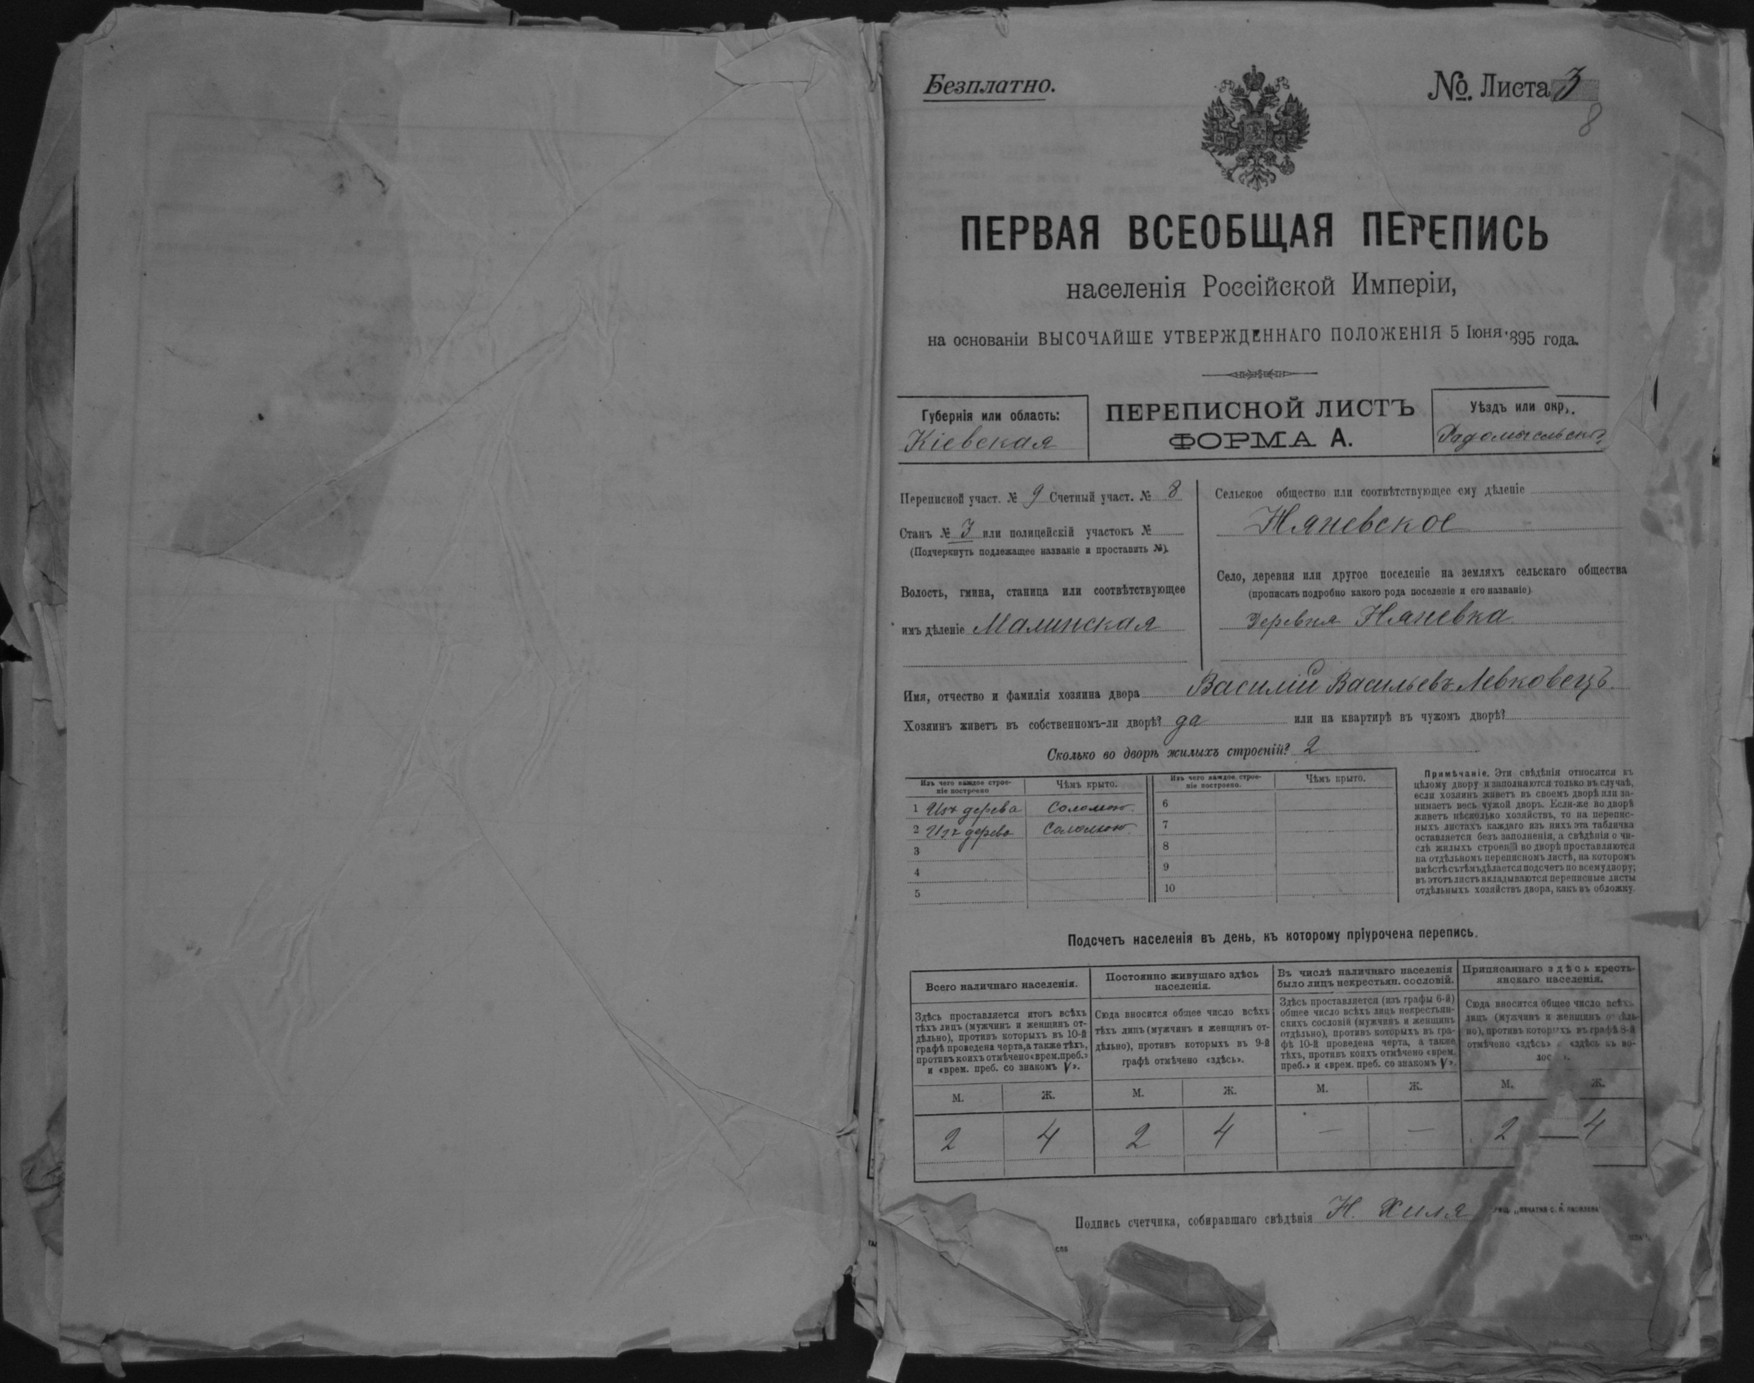 Безплатно.
№ Листа 3
8
ПЕРВАЯ ВСЕОБЩАЯ ПЕРЕПИСЬ
населенія Россійской Имперіи,
на основаніи ВЫСОЧАЙШЕ УТВЕРЖДЕННАГО ПОЛОЖЕНІЯ 5 Іюня 895 года.
Губернія или область:
Кіевская
ПЕРЕПИСНОЙ ЛИСТЪ
ФОРМА А.
Уѣздъ или окр.
Радомысльскій
Переписной участ. № 9 Счетный участ. № 8
Станъ № 3 или полицейскій участокъ №
(Подчеркнуть подлежащее названіе и проставить №).
Волость, гмина, станица или соотвѣтствующее
имъ дѣленіе Малинская
Сельское общество или соотвѣтствующее ему дѣленіе
Няневское
Село, деревня или другое поселеніе на земляхъ сельскаго общества
(прописать подробно какого рода поселеніе и его названіе)
Деревня Няневка
Имя, отчество и фамилія хозяина двора Василій Васильевъ Левковецъ
Хозяинъ живетъ въ собственномъ-ли дворѣ? да или на квартирѣ въ чужомъ дворѣ?
Сколько во дворѣ жилыхъ строеній? 2
Изъ чего каждое строеніе построено Чѣмъ крыто. Изъ чего каждое строеніе построено. Чѣмъ крыто.
1 Изъ дерева Соломою 6
2 Изъ дерева Соломою 7
3 8
4 9
5 10
Примѣчаніе. Эти свѣдѣнія относятся къ
цѣлому двору и заполняются только въ случаѣ,
если хозяинъ живетъ въ своемъ дворѣ или за-
нимаетъ весь чужой дворъ. Если-же во дворѣ
живетъ нѣсколько хозяйствъ, то на перепис-
ныхъ листахъ каждаго изъ нихъ эта табличка
оставляется безъ заполненія, а свѣдѣнія о чи-
слѣ жилыхъ строеній во дворѣ проставляются
на отдѣльномъ переписномъ листѣ, на которомъ
вмѣстѣ съ тѣмъ дѣлается подсчетъ по всему двору;
въ этотъ листъ вкладываются переписные листы
отдѣльныхъ хозяйствъ двора, какъ въ обложку.
Подсчетъ населенія въ день, къ которому пріурочена перепись.
Всего наличнаго населенія.
Здѣсь проставляется итогъ всѣхъ
тѣхъ лицъ (мужчинъ и женщинъ от-
дѣльно), противъ которыхъ въ 10-й
графѣ проведена черта, а также тѣхъ,
противъ коихъ отмѣчено «врем. преб.»
и «врем. преб. со знакомъ V».
Постоянно живущаго здѣсь
населенія.
Сюда вносится общее число всѣхъ
тѣхъ лицъ (мужчинъ и женщинъ от-
дѣльно), противъ которыхъ въ 9-й
графѣ отмѣчено «здѣсь».
Въ числѣ наличнаго населенія
было лицъ некрестьян. сословій.
Здѣсь проставляется (изъ графы 6-й)
общее число всѣхъ лицъ некрестьян-
скихъ сословій (мужчинъ и женщинъ
отдѣльно), противъ которыхъ въ гра-
фѣ 10-й проведена черта, а также
тѣхъ, противъ коихъ отмѣчено «врем.
преб.» и «врем. преб. со знакомъ V».
Приписаннаго здѣсь кресть-
янскаго населенія.
Сюда вносится общее число всѣхъ
лицъ (мужчинъ и женщинъ отдѣль-
но), противъ которыхъ въ графѣ 8-й
отмѣчено «здѣсь» «здѣсь въ во-
лос ».
М. Ж. М. Ж. М. Ж. М. Ж.
2 4 2 4 — — 2 — 4
Подпись счетчика, собиравшаго свѣдѣнія Н. Хиля